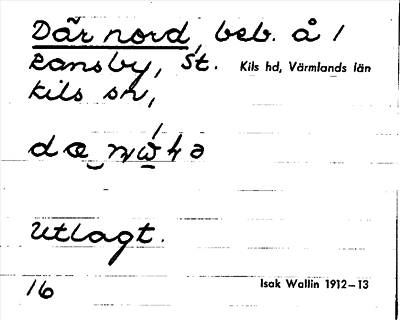 Där nord, beb. å 1
Ransby, St. Kils hd, Värmlands län
Kils sn,
Utlagt.
16 Isak Wallin 1912–13